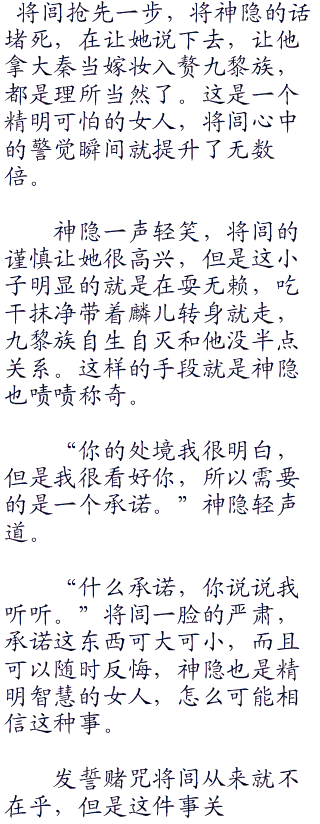 将闾抢先一步，将神隐的话
堵死，在让她说下去，让他
拿大秦当嫁妆入赘九黎族，
都是理所当然了。这是一个
精明可怕的女人，将闾心中
的警觉瞬间就提升了无数
倍。
神隐一声轻笑，将闾的
谨慎让她很高兴，但是这小
子明显的就是在耍无赖，吃
干抹净带着麟儿转身就走，
九黎族自生自灭和他没半点
关系。这样的手段就是神隐
也啧啧称奇。
“你的处境我很明白，
但是我很看好你，所以需要
的是一个承诺。”神隐轻声
道。
“什么承诺，你说说我
听听。”将闾一脸的严肃，
承诺这东西可大可小，而且
可以随时反悔，神隐也是精
明智慧的女人，怎么可能相
信这种事。
发誓赌咒将闾从来就不
在乎，但是这件事关